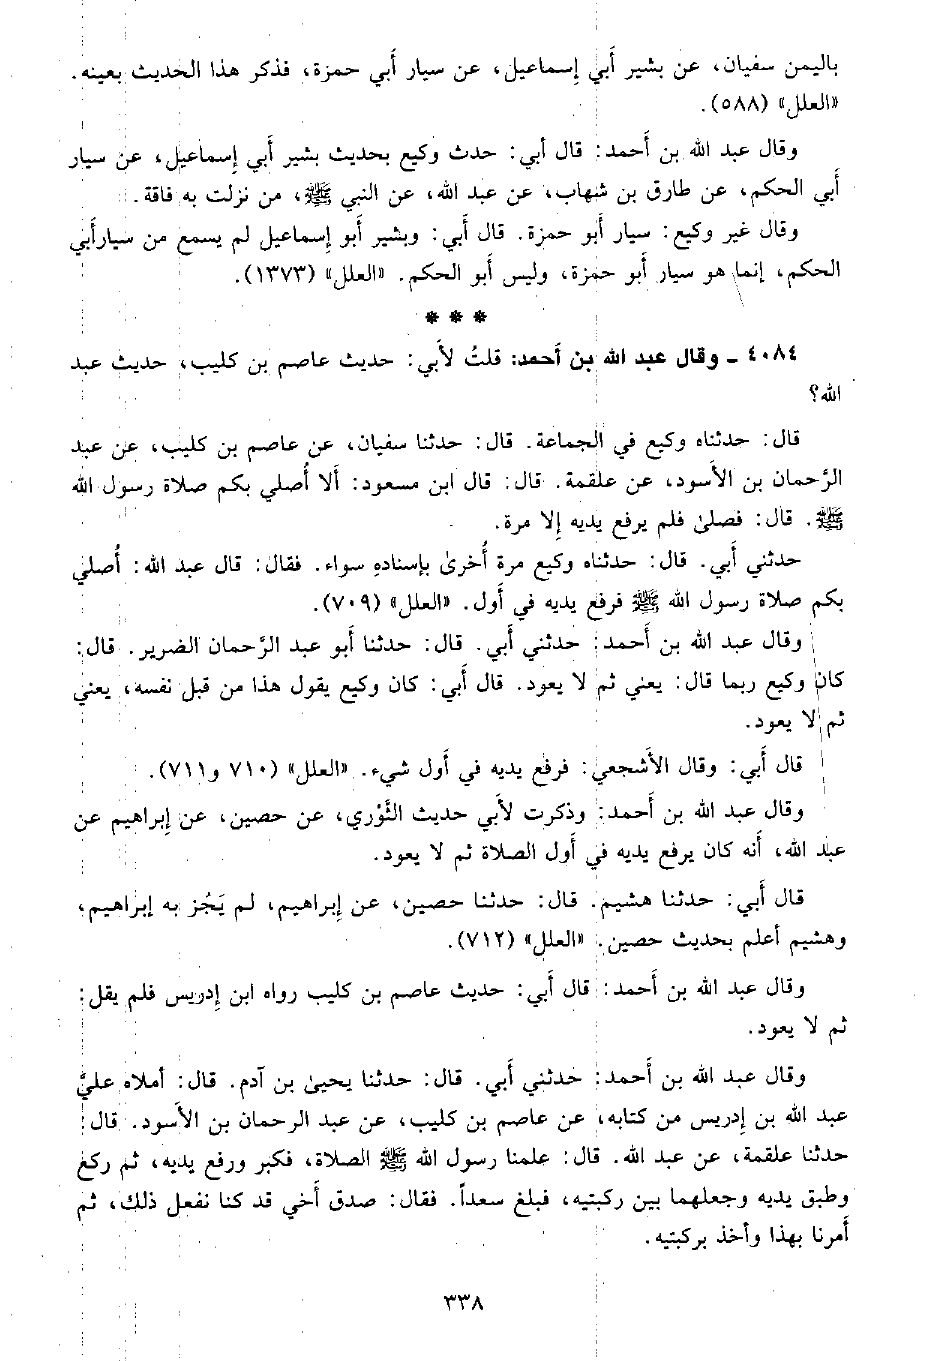 باليمن سفيان، عن بشير أَبي إِسماعيل، عن سيار أَبي حمزة، فذكر هذا الحديث بعينه.
«العلل» (٥٨٨).
وقال عبد الله بن أَحمد: قال أَبي: حدث وكيع بحديث بشير أَبي إِسماعيل، عن سيار
أَبي الحكم، عن طارق بن شهاب، عن عبد الله، عن النبي ﷺ، من نزلت به فاقة.
وقال غير وكيع: سيار أَبو حمزة. قال أَبي: وبشير أَبو إِسماعيل لم يسمع من سيارأَبي
الحكم، إِنما هو سيار أَبو حمزة، وليس أَبو الحكم. «العلل» (١٣٧٣).
* * *
٤٠٨٤ ـ وقال عبد الله بن أَحمد: قلتُ لأَبي: حديث عاصم بن كليب، حديث عبد
الله؟
قال: حدثناه وكيع في الجماعة. قال: حدثنا سفيان، عن عاصم بن كليب، عن عبد
الرَّحمان بن الأَسود، عن علقمة. قال: قال ابن مسعود: أَلا أُصلي بكم صلاة رسول الله
ﷺ. قال: فصلىٰ فلم يرفع يديه إِلا مرة.
حدثني أَبي. قال: حدثناه وكيع مرة أُخرىٰ بإِسنادهِ سواء. فقال: قال عبد الله: أُصلي
بكم صلاة رسول الله ﷺ فرفع يديه في أول. «العلل» (٧٠٩).
وقال عبد الله بن أَحمد: حدثني أَبي. قال: حدثنا أَبو عبد الرَّحمان الضرير. قال:
كان وكيع ربما قال: يعني ثم لا يعود. قال أَبي: كان وكيع يقول هذا من قبل نفسه، يعني
ثم لا يعود.
قال أَبي: وقال الأَشجعي: فرفع يديه في أَول شيء. «العلل» (٧١٠ و٧١١).
وقال عبد الله بن أَحمد: وذكرت لأَبي حديث الثَّوْري، عن حصين، عن إِبراهيم عن
عبد الله، أَنه كان يرفع يديه في أَول الصلاة ثم لا يعود.
قال أَبي: حدثنا هشيم. قال: حدثنا حصين، عن إِبراهيم، لم يَجُز به إِبراهيم،
وهشيم أعلم بحديث حصين. «العلل» (٧١٢).
وقال عبد الله بن أَحمد: قال أَبي: حديث عاصم بن كليب رواه ابن إِدريس فلم يقل:
ثم لا يعود.
وقال عبد الله بن أَحمد: حدثني أَبي. قال: حدثنا يحيىٰ بن آدم. قال: أملاه عليَّ
عبد الله بن إِدريس من كتابه، عن عاصم بن كليب، عن عبد الرحمان بن الأَسود. قال:
حدثنا علقمة، عن عبد الله. قال: علمنا رسول الله ﷺ الصلاة، فكبر ورفع يديه، ثم ركع
وطبق يديه وجعلهما بين ركبتيه، فبلغ سعداً. فقال: صدق أَخي قد كنا نفعل ذلك، ثم
أَمرنا بهذا وأَخذ بركبتيه.
٣٣٨